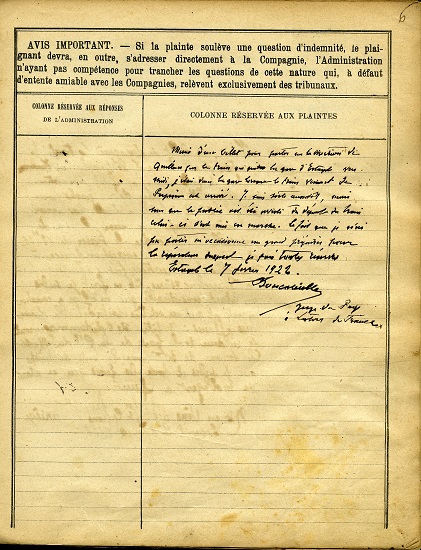 6
AVIS IMPORTANT. — Si la plainte soulève une question d'indemnité, le plai-
gnant devra, en outre, s'adresser directement à la Compagnie, l'Administration
n'ayant pas compétence pour trancher les questions de cette nature qui, à défaut
d'entente amiable avec les Compagnies, relèvent exclusivement des tribunaux.
COLONNE RÉSERVÉE AUX RÉPONSES
DE L'ADMINISTRATION
COLONNE RÉSERVÉE AUX PLAINTES
Muni d'un billet pour partir en direction de
par le train qui quitte la gare d'Estagel
midi, j'étais dans la gare lorsque le train venant de
Perpignan est arrivé.
que le public ait été averti du départ du train
celui-ci s'est mis en marche. Le fait que je n'ai
pu partir m'occasionne un grand préjudice pour
la réparation duquel je fais toutes réserves
Estagel le 7 1922.
juge de Paix
à Latour de France